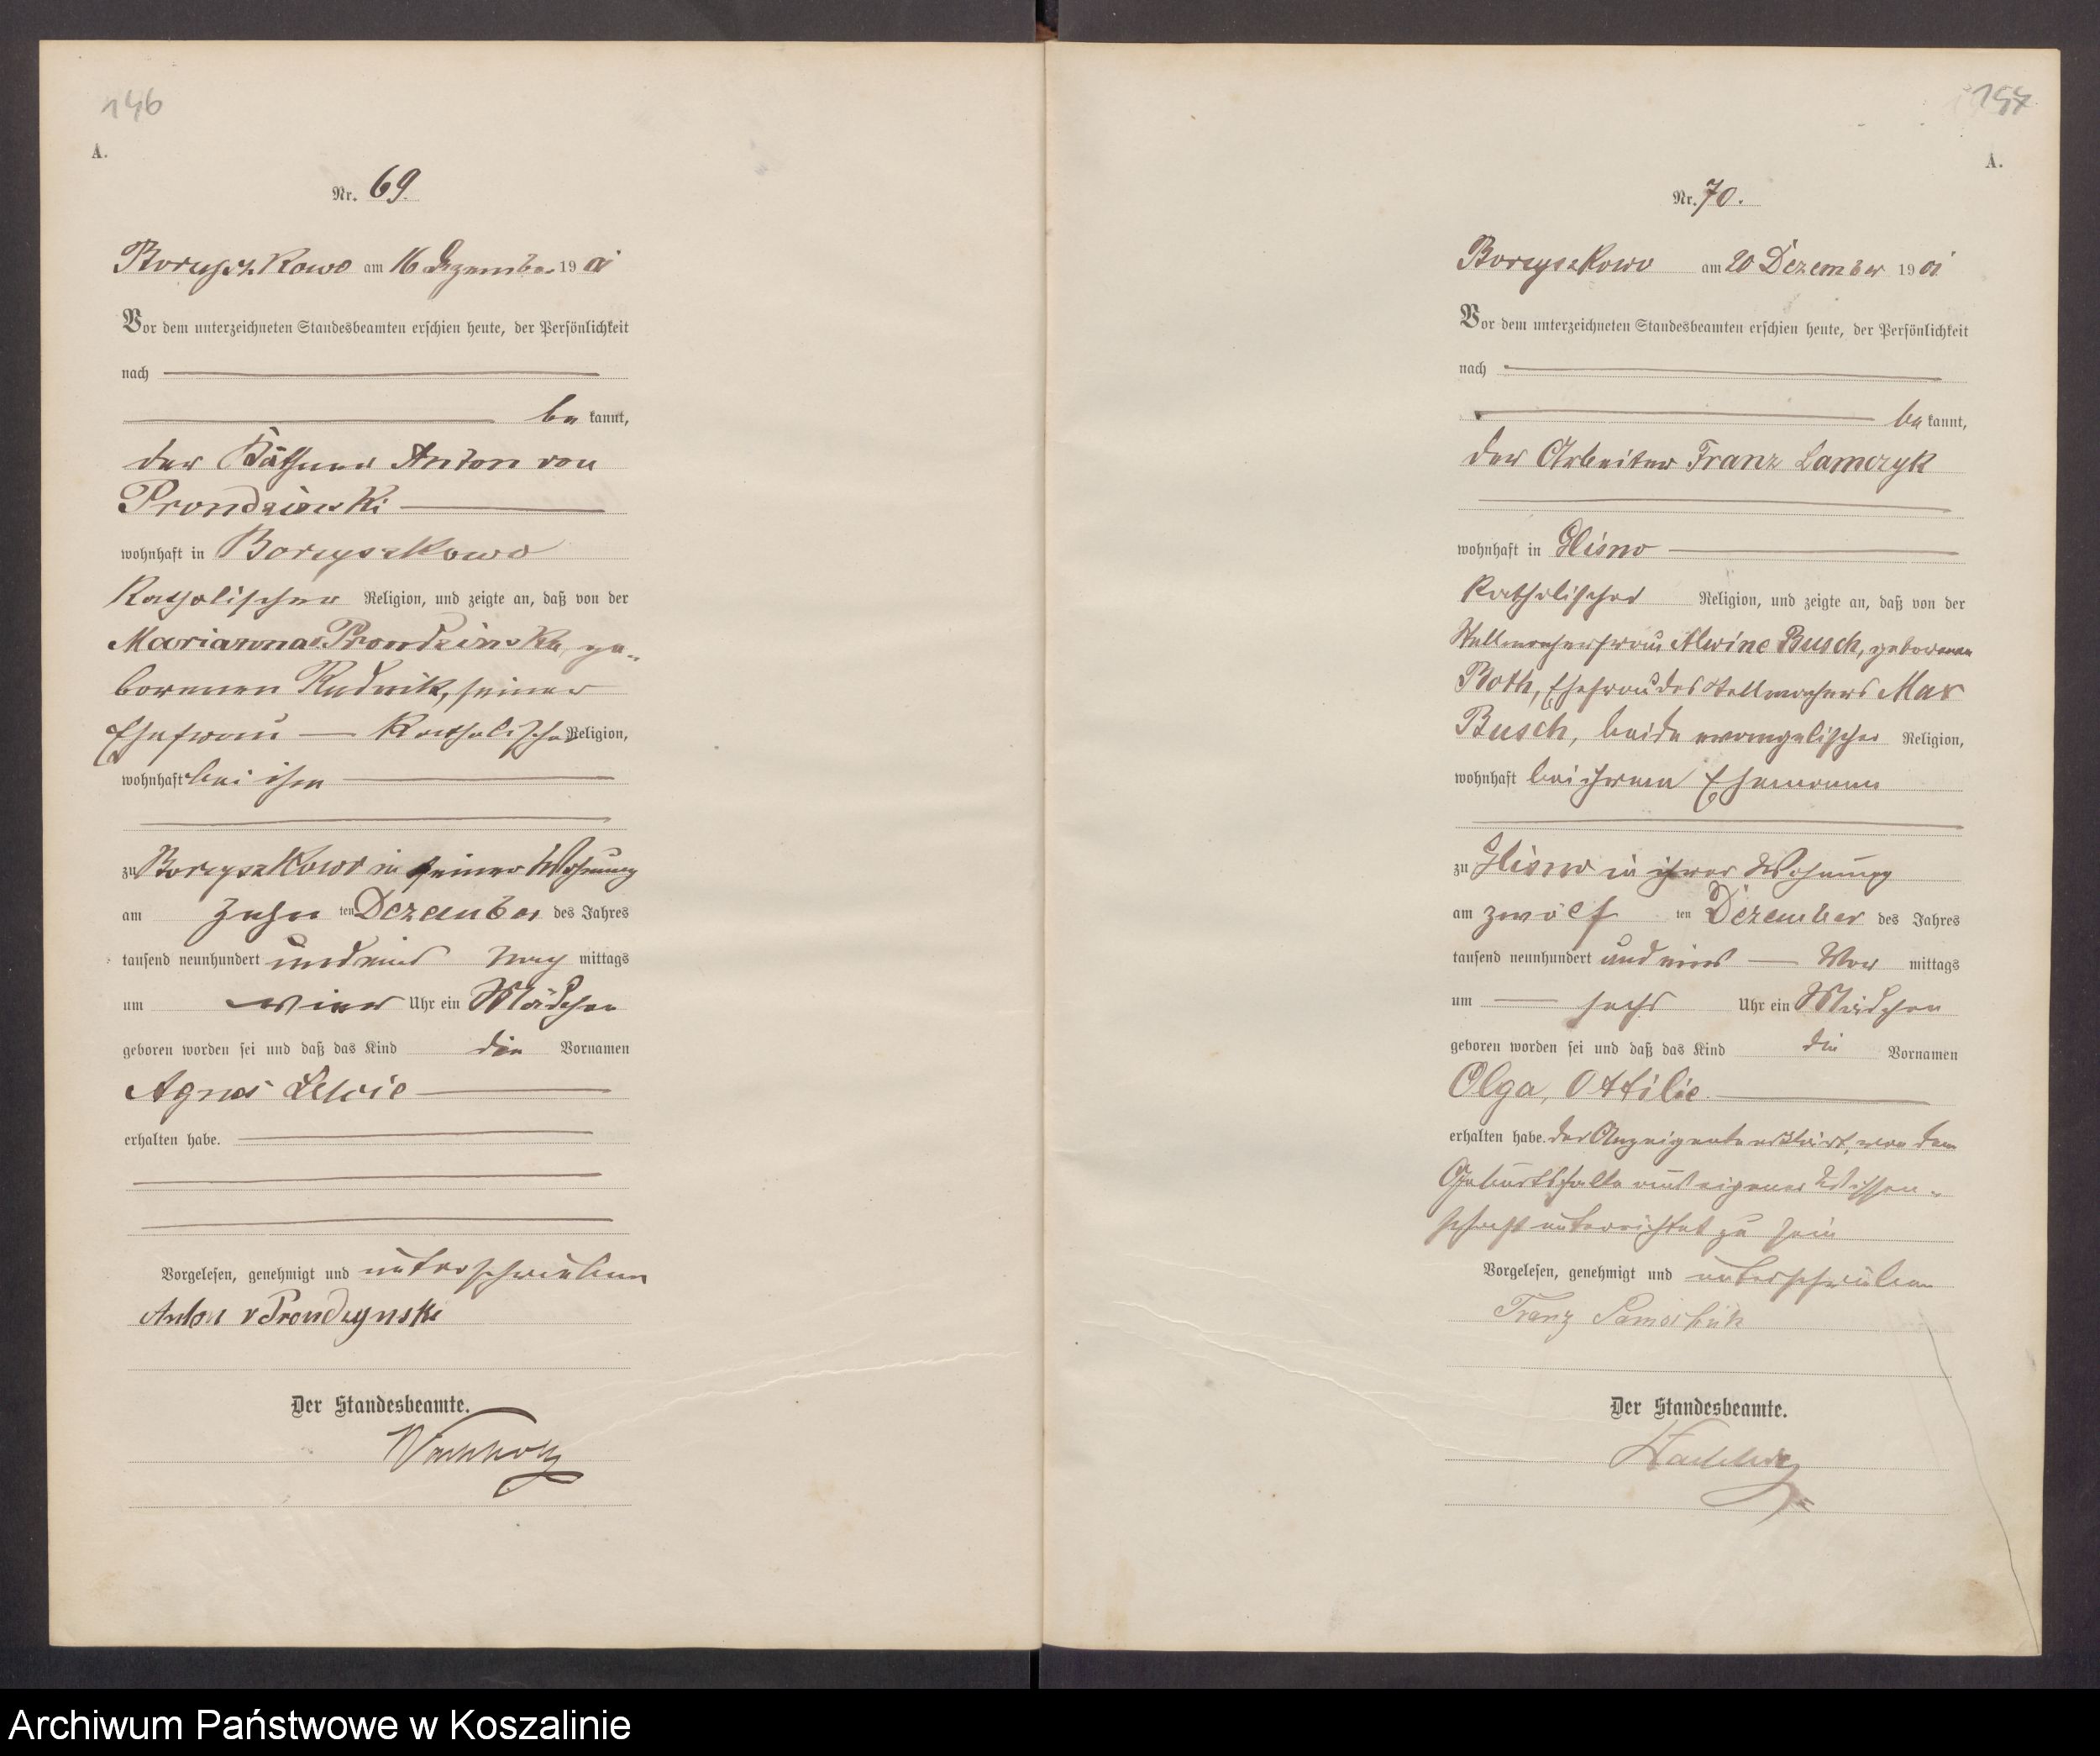 146
A.
Nr. 69.
Boryszkowo am 16 Dezember 19 01
Vor dem unterzeichneten Standesbeamten erschien heute, der Persönlichkeit
nach
be kannt,
der Käthner Anton von
Prondzinski
wohnhaft in Boryszkowo
Katholischer Religion, und zeigte an, daß von der
Marianna Prondzinska, ge-
borenen Rudnik, seiner
Ehefrau Katholischer Religion,
wohnhaft bei ihm
zu Boryszkowo in seiner Wohnung
am zehn ten Dezember des Jahres
tausend neunhundert und eins Nach mittags
um vier Uhr ein Mädchen
geboren worden sei und daß das Kind die Vornamen
Agnes
erhalten habe.
Vorgelesen, genehmigt und unterschrieben
Anton v Prondzynski
Der Standesbeamte.
A.
Nr. 70.
Boryszkowo am 20 Dezember 19 01
Vor dem unterzeichneten Standesbeamten erschien heute, der Persönlichkeit
nach
be kannt,
der Arbeiter Franz Lamczyk
wohnhaft in Glisno
Katholischer Religion, und zeigte an, daß von der
Stellmacherfrau Alwine Busch, geborenen
Both, Ehefrau des Stellmachers Max
Busch, beide evangelischer Religion,
wohnhaft bei ihrem Ehemann
zu Glisno in ihrer Wohnung
am zwölf ten Dezember des Jahres
tausend neunhundert und eins Vor mittags
um sechs Uhr ein Mädchen
geboren worden sei und daß das Kind die Vornamen
Olga, Ottilie
erhalten habe. der Anzeigende erklärt, von dem
Geburtsfalle aus eigener Wissen-
schaft unterrichtet zu sein
Vorgelesen, genehmigt und unterschrieben
Franz
Der Standesbeamte.
Archiwum Państwowe w Koszalinie